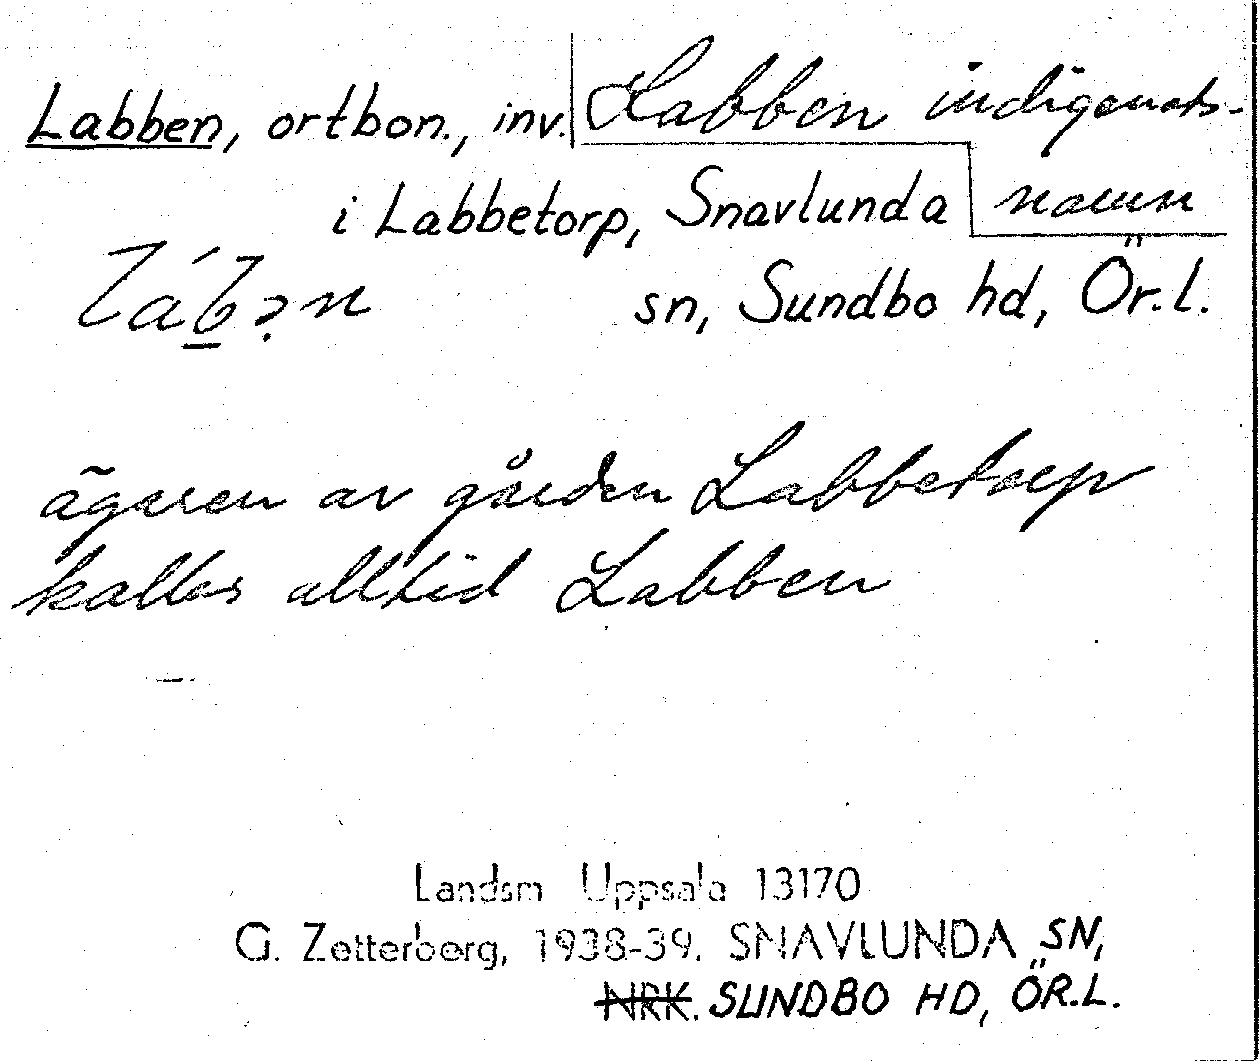 Labben, ortbon., inv. Labben indigenats-
i Labbetorp, Snavlunda namn
sn, Sundbo hd, Ör.l.
ägaren av gården Labbetorp
kallas alltid Labben
Landsm Uppsala 13170
G. Zetterberg, 1938-39. SNAVLUNDA SN,
NRK. SUNDBO HD, ÖR.L.